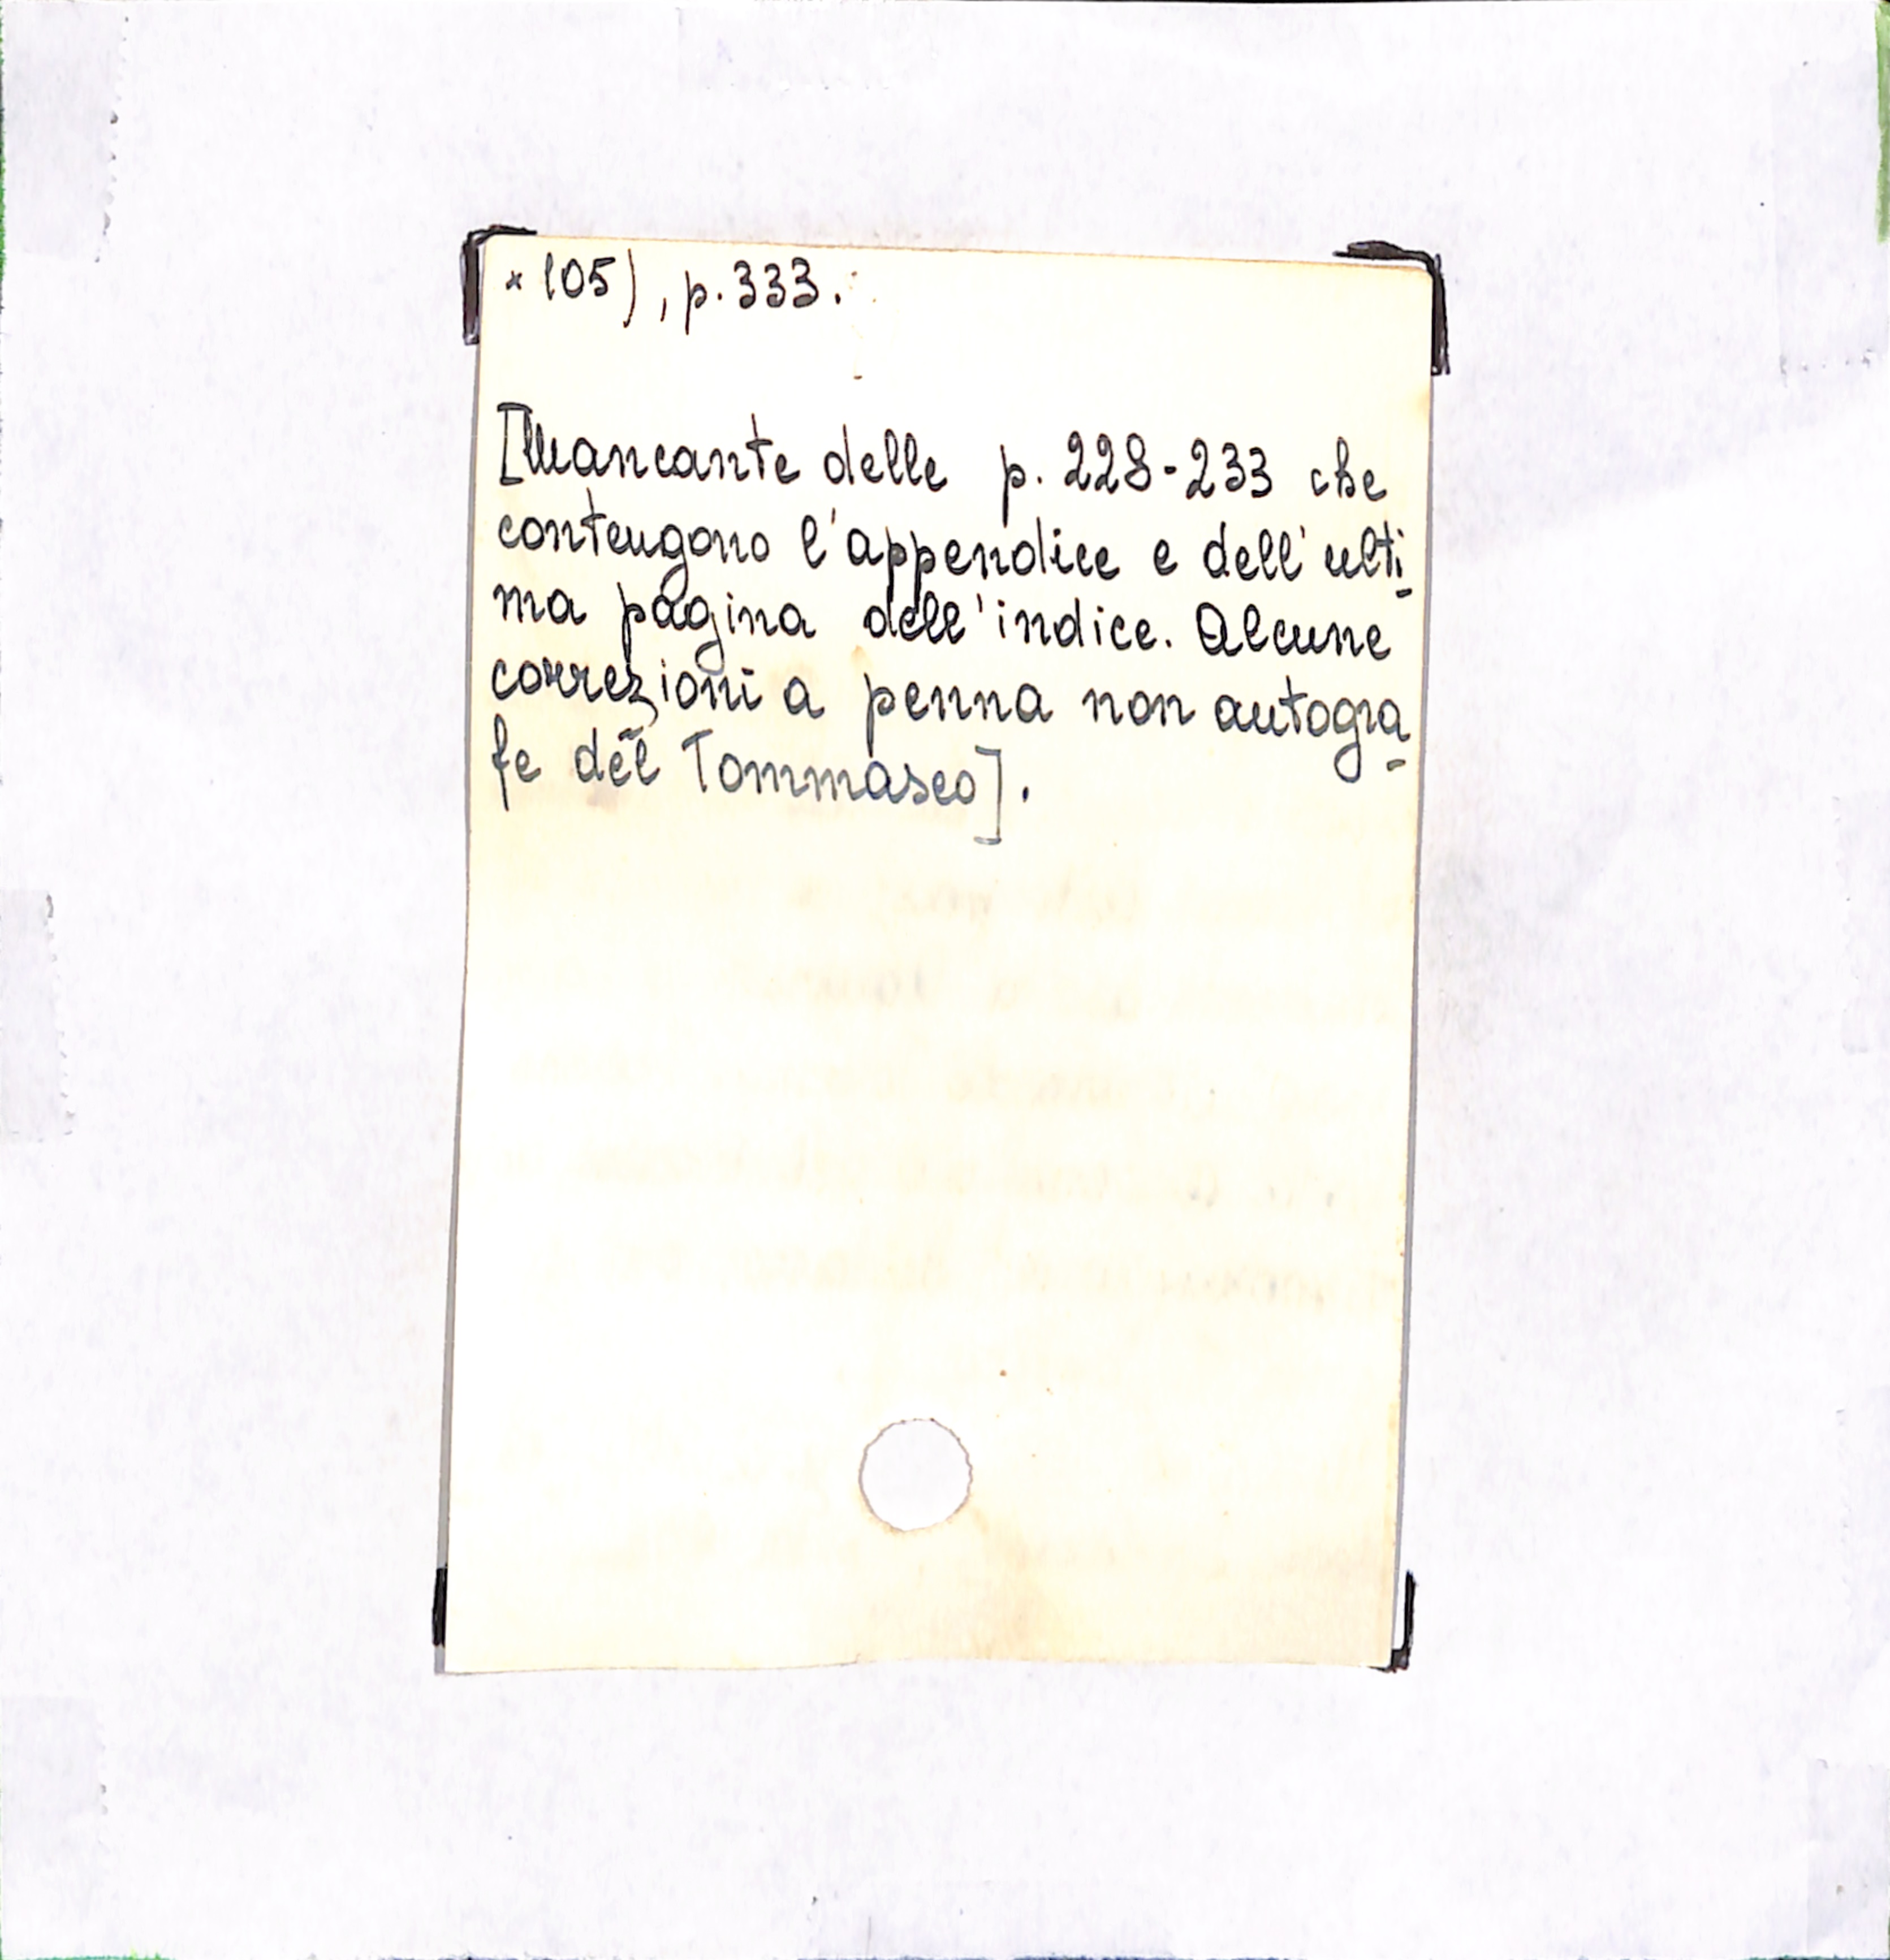 × 105), p. 333.
[Mancante delle p. 228-233 che
contengono l'appendice e dell'ulti-
ma pagina dell'indice. Alcune
correzioni a penna non autogra-
fe del Tommaseo].